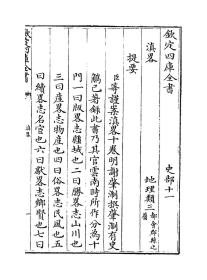 欽定四庫全書
史部十一
滇畧
地理類三都會郡縣之屬
提要
臣等謹案滇畧十卷明謝肇淛撰肇淛有史
觿已著錄此書乃其官雲南時所作分為十
門一曰版畧志疆域也二曰勝畧志山川也
三曰產畧志物產也四曰俗畧志民風也五
曰績畧志名宦也六曰獻畧志鄉賢也七曰